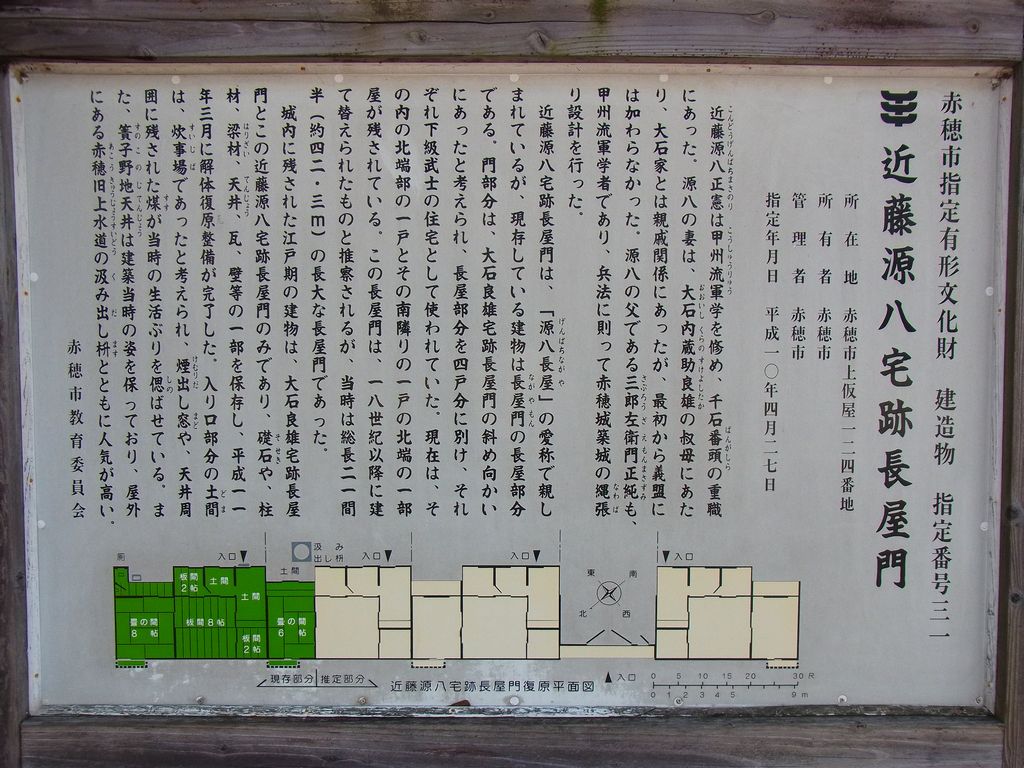 赤穂市指定有形文化財　建造物　指定番号三一
近藤源八宅跡長屋門
所在地　赤穂市上仮屋一二四番地
所有者　赤穂市
管理者　赤穂市
指定年月日　平成一〇年四月二七日
近藤源八正憲は甲州流軍学を修め、千石番頭の重職
にあった。源八の妻は、大石内蔵助良雄の叔母にあた
り、大石家とは親戚関係にあったが、最初から義盟に
は加わらなかった。源八の父である三郎左衛門正純も、
甲州流軍学者であり、兵法に則って赤穂城築城の縄張
り設計を行った。
近藤源八宅跡長屋門は、「源八長屋」の愛称で親し
まれているが、現存している建物は長屋門の長屋部分
である。門部分は、大石良雄宅跡長屋門の斜め向かい
にあったと考えられ、長屋部分を四戸分に別け、それ
ぞれ下級武士の住宅として使われていた。現在は、そ
の内の北端部の一戸とその南隣りの一戸の北端の一部
屋が残されている。この長屋門は、一八世紀以降に建
て替えられたものと推察されるが、当時は総長二一間
半（約四二・三m）の長大な長屋門であった。
城内に残された江戸期の建物は、大石良雄宅跡長屋
門とこの近藤源八宅跡長屋門のみであり、礎石や、柱
材、梁材、天井、瓦、壁等の一部を保存し、平成一一
年三月に解体復原整備が完了した。入り口部分の土間
は、炊事場であったと考えられ、煙出し窓や、天井周
囲に残された煤が当時の生活ぶりを偲ばせている。ま
た、簀子野地天井は建築当時の姿を保っており、屋外
にある赤穂旧上水道の汲み出し枡とともに人気が高い。
赤穂市教育委員会
厠
入口
汲み
出し枡
入口
入口
入口
土間
板間
2帖
土間
土間
畳の間
8帖
板間8帖
板間
2帖
畳の間
6帖
東
南
北
西
現存部分
推定部分
近藤源八宅跡長屋門復原平面図
入口
0 5 10 15 20 25 30 尺
0 1 2 3 4 5 6 7 8 9 m